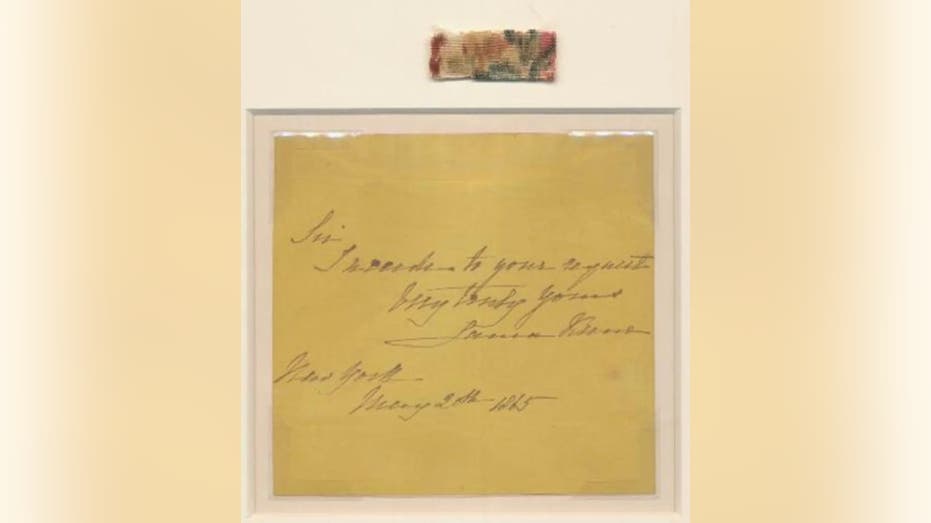 Sir
I accede to your request
Very truly yours
Laura Keene
New York
May 1865